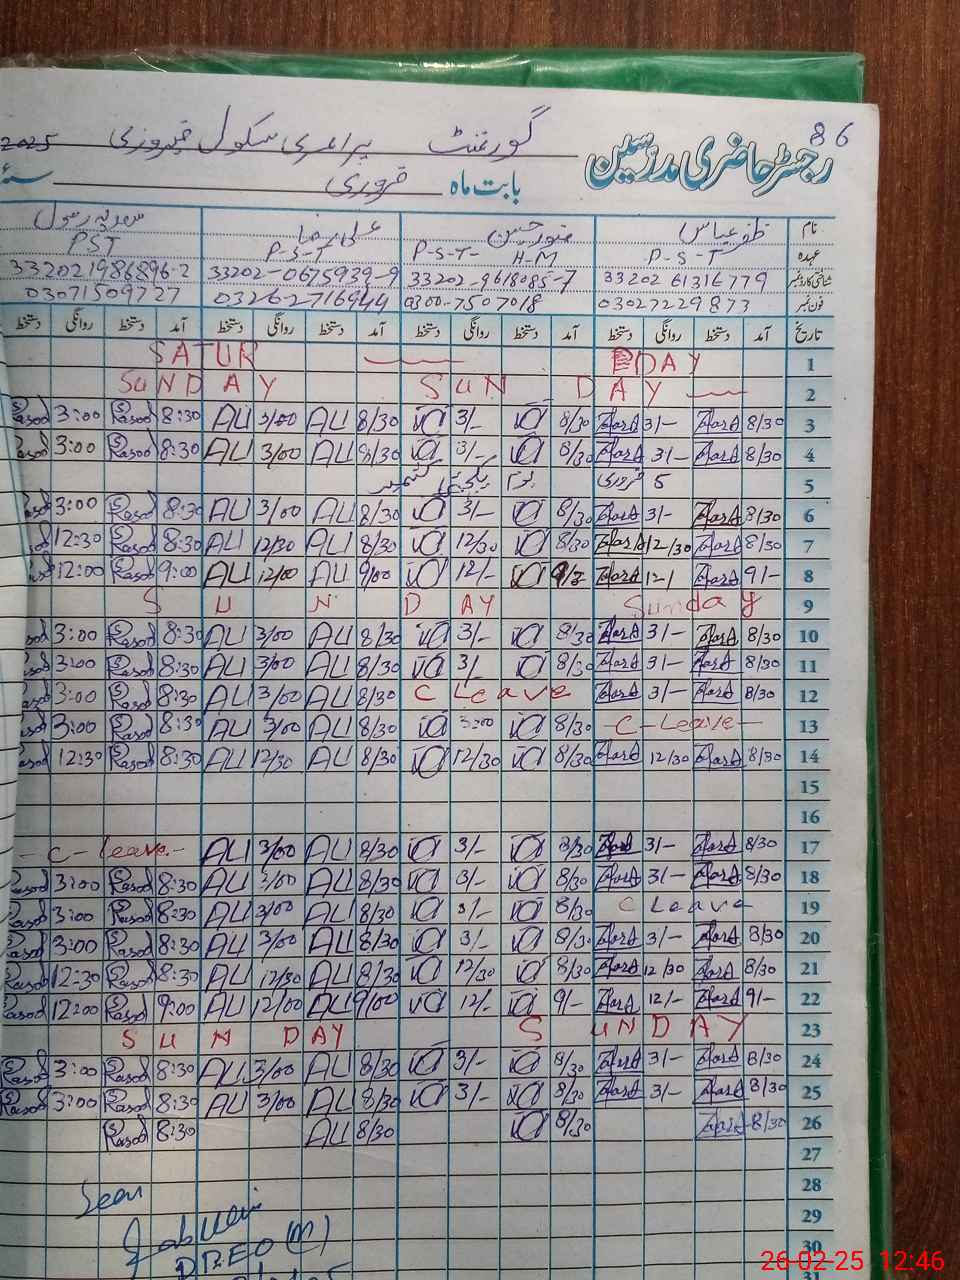 86
رجسٹر حاضری مدرسین گورنمنٹ پرائمری سکول فیروزی
بابت ماہ فروری سنہ 2025
نام ظفر عباس منور حسین علی رضا سعدیہ رسول
عہدہ P-S-T P-S-T- H-M P-S-T PST
شناختی کارڈ نمبر 33202 61316779 33202-9618085-7 33202-0675939-9 332021986896-2
فون نمبر 03027229873 0300-7507018 0326-2716944 03071509727
تاریخ آمد دستخط روانگی دستخط آمد دستخط روانگی دستخط آمد دستخط روانگی دستخط آمد دستخط روانگی دستخط
SATUR DAY 1
SUNDAY SUN DAY 2
3:00 Rasool 8:30 ALI 3/00 ALI 8/30 3/- 8/30 3/- 8/30 3
3:00 Rasool 8:30 ALI 3/00 ALI 8/30 3/- 8/30 3/- 8/30 4
5 فروری یوم یکجہتی کشمیر 5
3:00 Rasool 8:30 ALI 3/00 ALI 8/30 3/- 8/30 3/- 8/30 6
12:30 Rasool 8:30 ALI 12/30 ALI 8/30 12/30 8/30 12/30 8/30 7
12:00 Rasool 9:00 ALI 12/00 ALI 9/00 12/- 12/ 9/- 8
SUNDAY Sunday 9
3:00 Rasool 8:30 ALI 3/00 ALI 8/30 3/- 8/30 3/- 8/30 10
3:00 Rasool 8:30 ALI 3/00 ALI 8/30 3/ 8/30 3/- 8/30 11
3:00 Rasool 8:30 ALI 3/00 ALI 8/30 C Leave 3/- 8/30 12
3:00 Rasool 8:30 ALI 3/00 ALI 8/30 3:00 8/30 - C - Leave - 13
12:30 Rasool 8:30 ALI 12/30 ALI 8/30 12/30 8/30 12/30 8/30 14
15
16
- C - leave - ALI 3/00 ALI 8/30 3/- 8/30 3/- 8/30 17
Rasool 3:00 Rasool 8:30 ALI 3/00 ALI 8/30 3/- 8/30 3/- 8/30 18
Rasool 3:00 Rasool 8:30 ALI 3/00 ALI 8/30 3/- 8/30 C Leave 19
Rasool 3:00 Rasool 8:30 ALI 3/00 ALI 8/30 3/- 8/30 3/- 8/30 20
Rasool 12:30 Rasool 8:30 ALI 12/30 ALI 8/30 12/30 8/30 12/30 8/30 21
Rasool 12:00 Rasool 9:00 ALI 12/00 ALI 9/00 12/- 9/- 12/- 9/- 22
SUN DAY SUNDAY 23
Rasool 3:00 Rasool 8:30 ALI 3/00 ALI 8/30 3/- 8/30 3/- 8/30 24
Rasool 3:00 Rasool 8:30 ALI 3/00 ALI 8/30 3/- 8/30 3/- 8/30 25
Rasool 8:30 ALI 8/30 8/30 8/30 26
27
28
Seen
29
30
31
26-02-25 12:46